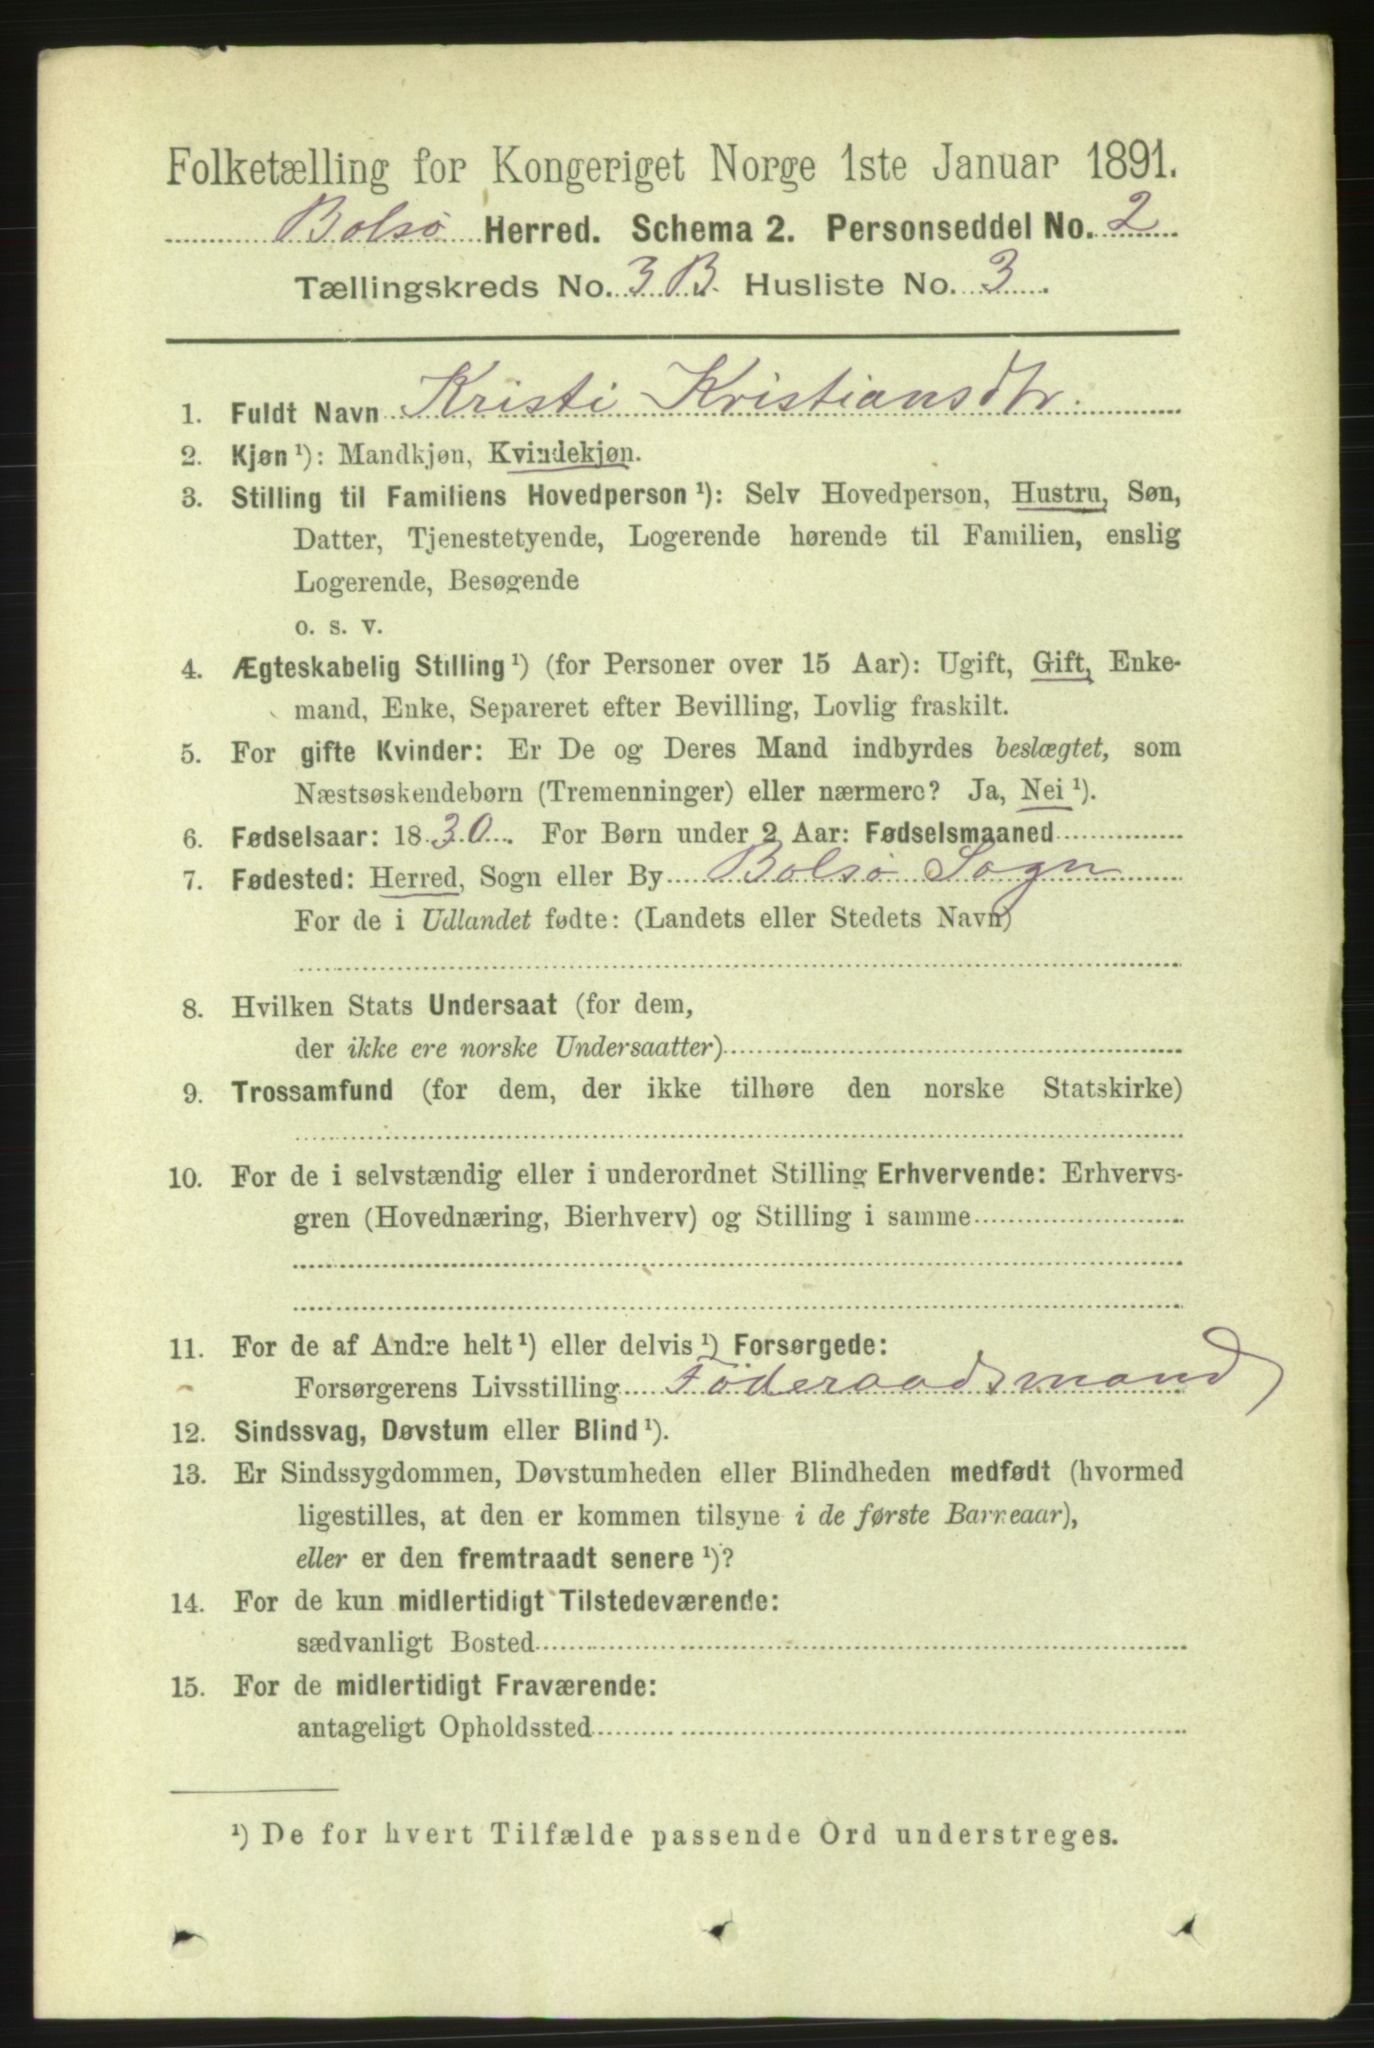 Folketælling for Kongeriget Norge 1ste Januar 1891.
Bolsø Herred. Schema 2. Personseddel No. 2
Tællingskreds No. 3 B. Husliste No. 3.
1. Fuldt Navn Kristi Kristiansdtr.
2. Kjøn ¹): Mandkjøn, Kvindekjøn.
3. Stilling til Familiens Hovedperson ¹): Selv Hovedperson, Hustru, Søn,
Datter, Tjenestetyende, Logerende hørende til Familien, enslig
Logerende, Besøgende
o. s. v.
4. Ægteskabelig Stilling ¹) (for Personer over 15 Aar): Ugift, Gift, Enke-
mand, Enke, Separeret efter Bevilling, Lovlig fraskilt.
5. For gifte Kvinder: Er De og Deres Mand indbyrdes beslægtet, som
Næstsøskendebørn (Tremenninger) eller nærmere? Ja, Nei ¹).
6. Fødselsaar: 1830. For Børn under 2 Aar: Fødselsmaaned
7. Fødested: Herred, Sogn eller By Bolsø Sogn
For de i Udlandet fødte: (Landets eller Stedets Navn)
8. Hvilken Stats Undersaat (for dem,
der ikke ere norske Undersaatter)
9. Trossamfund (for dem, der ikke tilhøre den norske Statskirke)
10. For de i selvstændig eller i underordnet Stilling Erhvervende: Erhvervs-
gren (Hovednæring, Bierhverv) og Stilling i samme
11. For de af Andre helt ¹) eller delvis ¹) Forsørgede:
Forsørgerens Livsstilling Föderaadsmand
12. Sindssvag, Døvstum eller Blind ¹).
13. Er Sindssygdommen, Døvstumheden eller Blindheden medfødt (hvormed
ligestilles, at den er kommen tilsyne i de første Barneaar),
eller er den fremtraadt senere ¹)?
14. For de kun midlertidigt Tilstedeværende:
sædvanligt Bosted
15. For de midlertidigt Fraværende:
antageligt Opholdssted
¹) De for hvert Tilfælde passende Ord understreges.